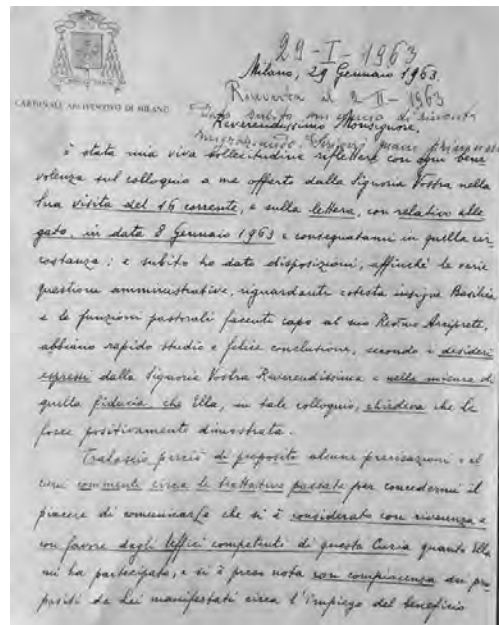 29-I-1963
Milano, 29 Gennaio 1963.
CARDINALE ARCIVESCOVO DI MILANO
Ricevuta il 2-II-1963
dato subito un cenno di ricevuta
Reverendissimo Monsignore,
ringraziando.
è stata mia viva sollecitudine riflettere con ogni bene
volenza sul colloquio a me offerto dalla Signoria Vostra nella
Sua visita del 16 corrente, e sulla lettera, con relativo alle
gato, in data 8 Gennaio 1963 e consegnatami in quella cir
costanza; e subito ho dato disposizioni, affinché le varie
questioni amministrative, riguardanti cotesta insigne Basilica
e le funzioni pastorali facenti capo al suo Rev.mo Arciprete,
abbiano rapido studio e felice conclusione, secondo i desideri
espressi dalla Signoria Vostra Reverendissima e nella misura di
quella fiducia che Ella, in tale colloquio, chiedeva che Le
fosse positivamente dimostrata.
Tralascio perciò di proposito alcune precisazioni e al
cuni commenti circa le trattative passate per concedermi il
piacere di comunicarLe che si è considerato con riverenza e
con favore dagli Uffici competenti di questa Curia quanto Ella
mi ha partecipato, e si è preso nota con compiacenza dei pro
positi da Lei manifestati circa l'impiego del beneficio